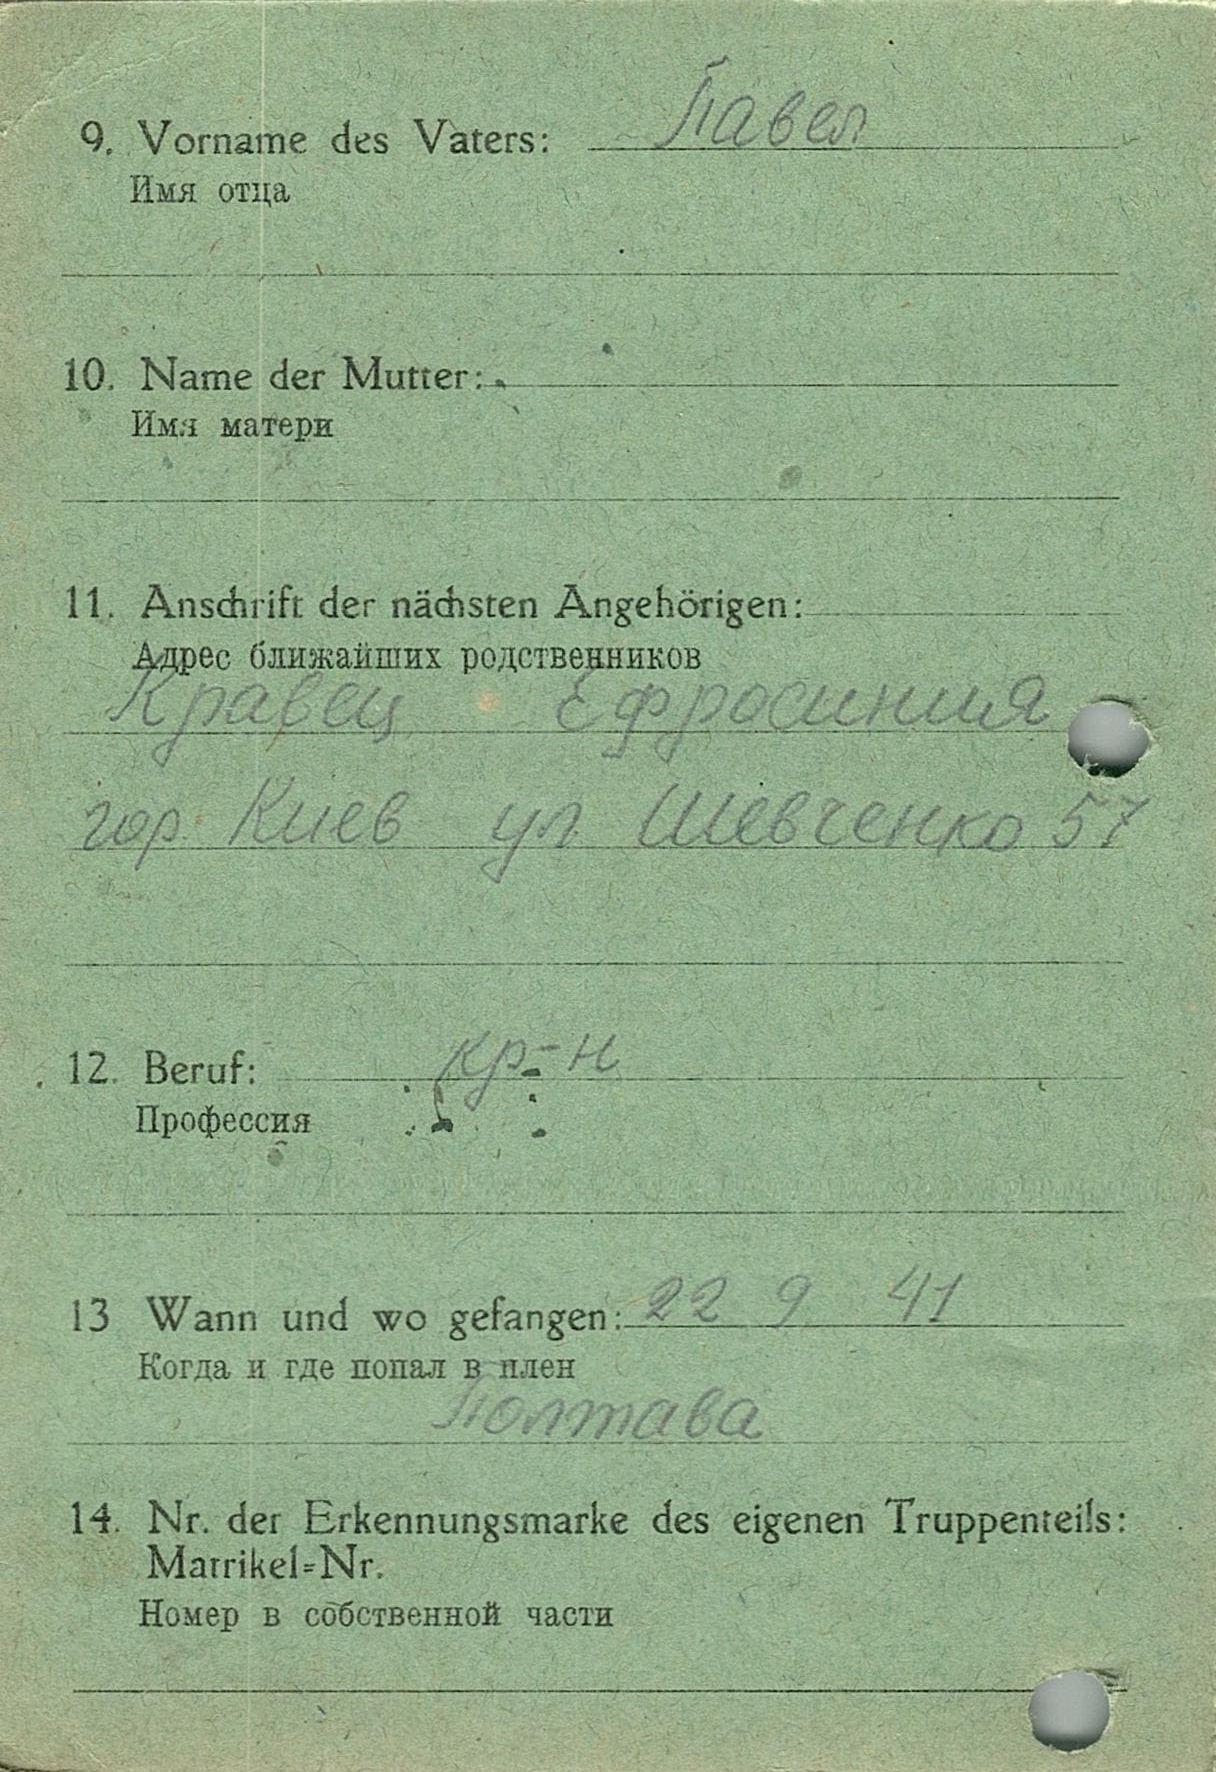 9. Vorname des Vaters: Павел
Имя отца
10. Name der Mutter:
Имя матери
11. Anschrift der nächsten Angehörigen:
Адрес ближайших родственников
Кравец Ефросиния
гор. Киев ул Шевченко 57
12. Beruf: кр-н
Профессия
13 Wann und wo gefangen: 22 9 41
Когда и где попал в плен
Полтава
14. Nr. der Erkennungsmarke des eigenen Truppenteils:
Matrikel=Nr.
Номер в собственной части